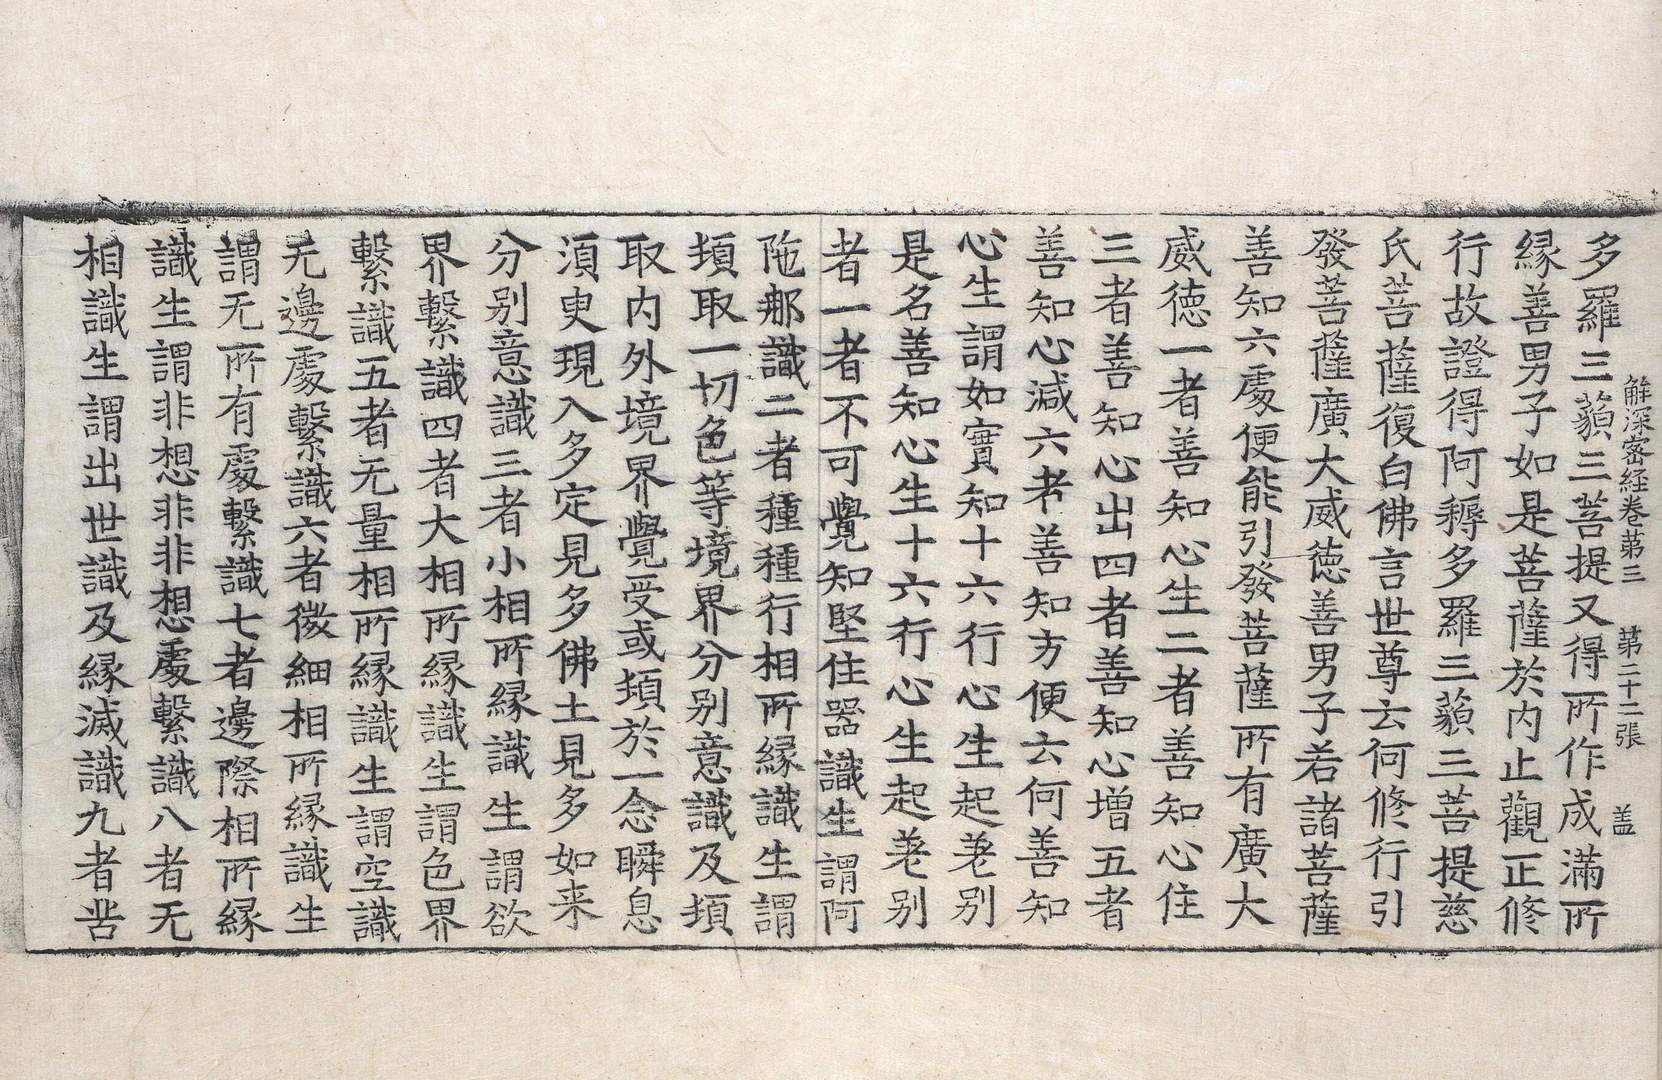 解深密経巻苐三　苐二十二張　盖
多羅三藐三菩提又得所作成滿所
縁善男子如是菩薩於内止觀正修
行故證得阿耨多羅三藐三菩提慈
氏菩薩復白佛言世尊云何修行引
發菩薩廣大威徳善男子若諸菩薩
善知六處便能引發菩薩所有廣大
威徳一者善知心生二者善知心住
三者善知心出四者善知心增五者
善知心減六者善知方便云何善知
心生謂如實知十六行心生起差别
是名善知心生十六行心生起差别
者一者不可覺知堅住器識生謂阿
陁郍識二者種種行相所縁識生謂
頓取一切色等境界分别意識及頓
取内外境界覺受或頓於一念瞬息
湏臾現入多定見多佛土見多如来
分别意識三者小相所縁識生謂欲
界繫識四者大相所縁識生謂色界
繫識五者无量相所縁識生謂空識
无邊處繫識六者微細相所縁識生
謂无所有處繫識七者邊際相所縁
識生謂非想非非想處繫識八者无
相識生謂出世識及縁滅識九者苦